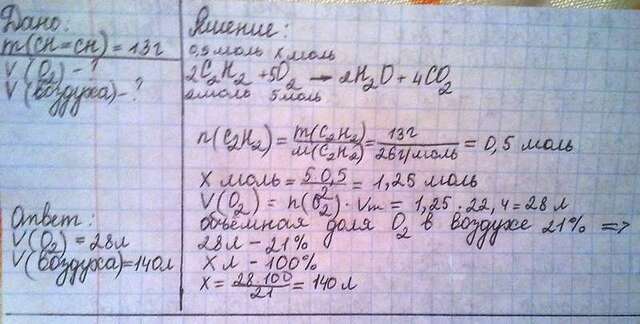 Дано:
m(CH≡CH) = 13г
V(O₂) - ?
V(воздуха) - ?
Ответ:
V(O₂) = 28л
V(воздуха) = 140л
Решение:
0,5 моль x моль
2C₂H₂ + 5O₂ → 2H₂O + 4CO₂
2 моль 5 моль
n(C₂H₂) = m(C₂H₂)/M(C₂H₂) = 13г/26г/моль = 0,5 моль
x моль = 5·0,5/2 = 1,25 моль
V(O₂) = n(O₂)·Vm = 1,25·22,4 = 28 л
объёмная доля O₂ в воздухе 21% =>
28л - 21%
x л - 100%
x = 28·100/21 = 140л